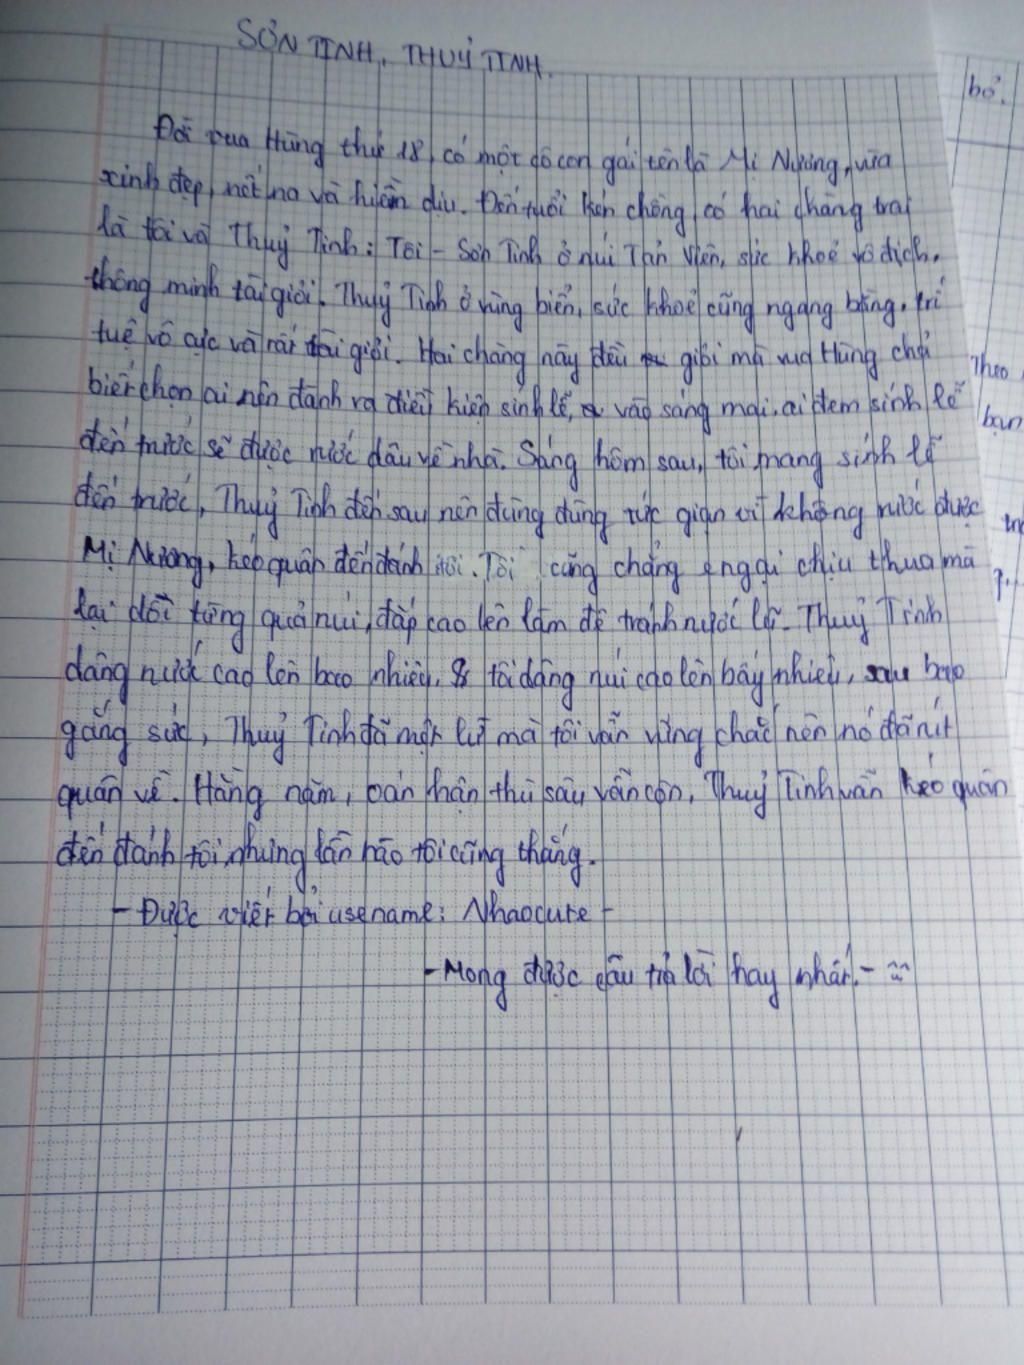 SƠN TINH, THUỶ TINH.
Đời vua Hùng thứ 18, có một cô con gái tên là Mị Nương, vừa
xinh đẹp, nết na và hiền dịu. Đến tuổi kén chồng, có hai chàng trai
là tôi và Thuỷ Tinh: Tôi - Sơn Tinh ở núi Tản Viên, sức khoẻ vô địch,
thông minh tài giỏi. Thuỷ Tinh ở vùng biển, sức khoẻ cũng ngang bằng, trí
tuệ vô cực và rất tài giỏi. Hai chàng này đều giỏi mà vua Hùng chỉ
biết chọn ai nên đành ra điều kiện sính lễ, vào sáng mai, ai đem sính lễ
đến trước sẽ được rước dâu về nhà. Sáng hôm sau, tôi mang sính lễ
đến trước, Thuỷ Tinh đến sau nên đùng đùng tức giận vì không rước được
Mị Nương, kéo quân đến đánh tôi. Tôi cũng chẳng e ngại chịu thua mà
lại dời từng quả núi, đắp cao lên làm đê tránh nước lũ. Thuỷ Tinh
dâng nước cao lên bao nhiêu, tôi dâng núi cao lên bấy nhiêu, sau bao
gắng sức, Thuỷ Tinh đã mệt lử mà tôi vẫn vững chắc nên nó đã rút
quân về. Hằng năm, oán hận thù sâu vẫn còn, Thuỷ Tinh vẫn kéo quân
đến đánh tôi, nhưng lần nào tôi cũng thắng.
- Được viết bởi usename: Nhaocute -
- Mong được câu trả lời hay nhất. -
bỏ.
Theo
bạn